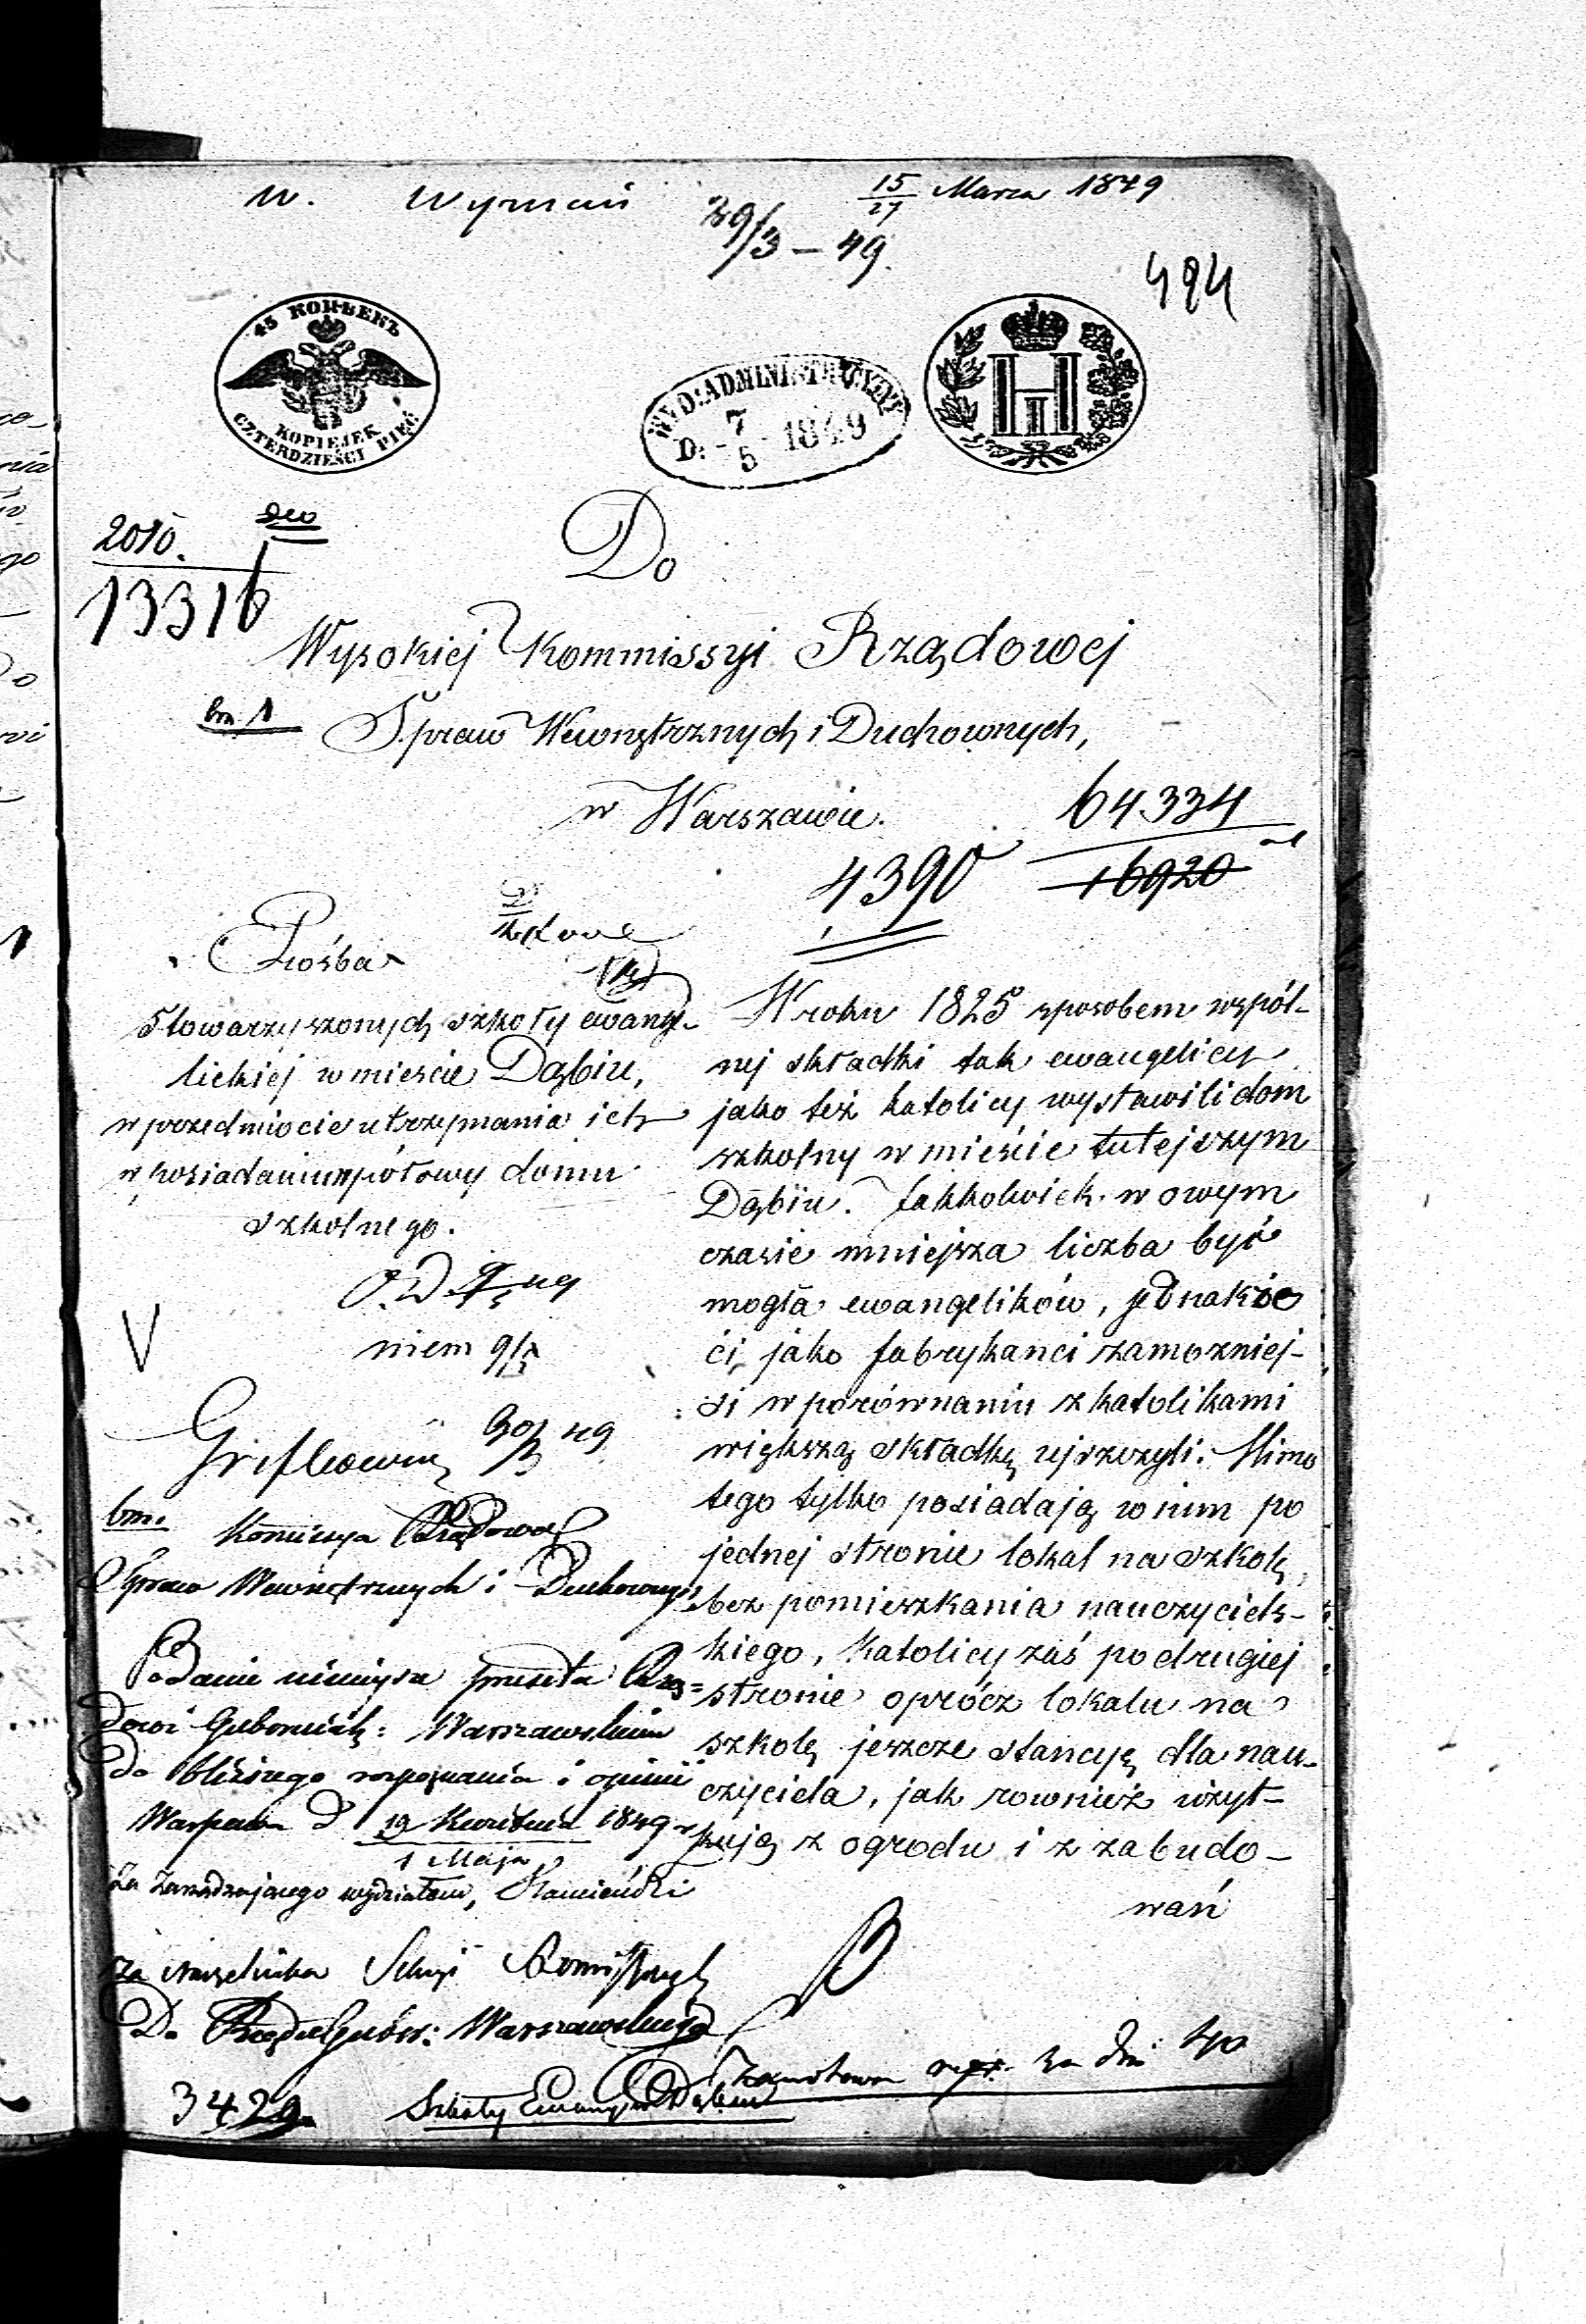 15/27 Marca 1849
29/3 – 49.
494
45 КОПѢЕКЪ
KOPIEJEK
CZTERDZIEŚCI PIĘĆ
WYD: ADMINISTRACYJNY
D. 7/5 1849
H
II
2010.
13316
Do
Wysokiej Kommissyi Rządowej
bm 1
Spraw Wewnętrznych i Duchownych,
w Warszawie.
64334
16920
4390
Prośba
Stowarzyszonych szkoły ewang-
lickiej w mieście Dąbiu,
w przedmiocie utrzymania ich
w posiadaniu połowy domu
szkolnego.
V
niem
30/3 49
W roku 1825 sposobem wspól-
nej składki tak ewangelicy
jako też katolicy wystawili dom
szkolny w mieście tutejszym
Dąbiu. Jakkolwiek w owym
czasie mniejsza liczba być
mogła ewangelików, jednakże
ci, jako fabrykanci zamożniej-
si w porównaniu z katolikami
większą składkę ujszczyli. Mimo
tego tylko posiadają w nim po
jednej stronie lokal na szkołę,
bez pomieszkania nauczyciels-
kiego, Katolicy zaś po drugiej
stronie oprócz lokalu na
szkolę jeszcze stancyę dla nau-
czyciela, jak rownież użyt-
kują z ogrodu i z zabudo-
wań
bm.
Komissya Rządowa
Spraw Wewnętrznych i Duchownych
Podanie niniejsze przesyła Rzą=
dowi Gubernial: Warszawskiemu
do bliższego rozpoznania i opinii
Warszawa d 19 Kwietnia 1849 r
1 Maja
Za Zarządzającego wydziałem, Kamieński
za Naczelnika Sekcyi
Do Rządu Gubern: Warszawskiego
3429
Szkoły Ewang w Dąbiu
40